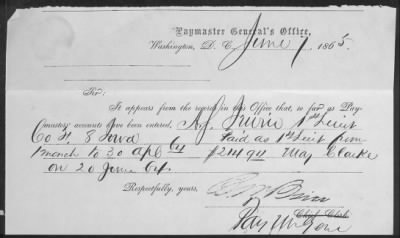 Paymaster General's Office,
Washington, D. C., June 7, 1865.
Sir:
It appears from the records in this Office that, so far as Pay-
masters' accounts have been entered, A. J. 1st Lieut
Co H. 8 Iowa Cy Paid as 1st Lieut from
1 March to 30 apl 64 $214 94 Maj Clarke
on 20 June 64.
Respectfully, yours,
Chief Clerk
Pay Mr Genl